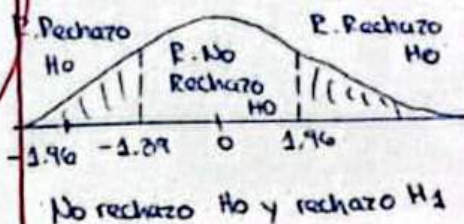 R. Rechazo
Ho
R. No
Rechazo
Ho
R. Rechazo
Ho
-1.96 -1.39 0 1.96
No rechazo Ho y rechazo H1